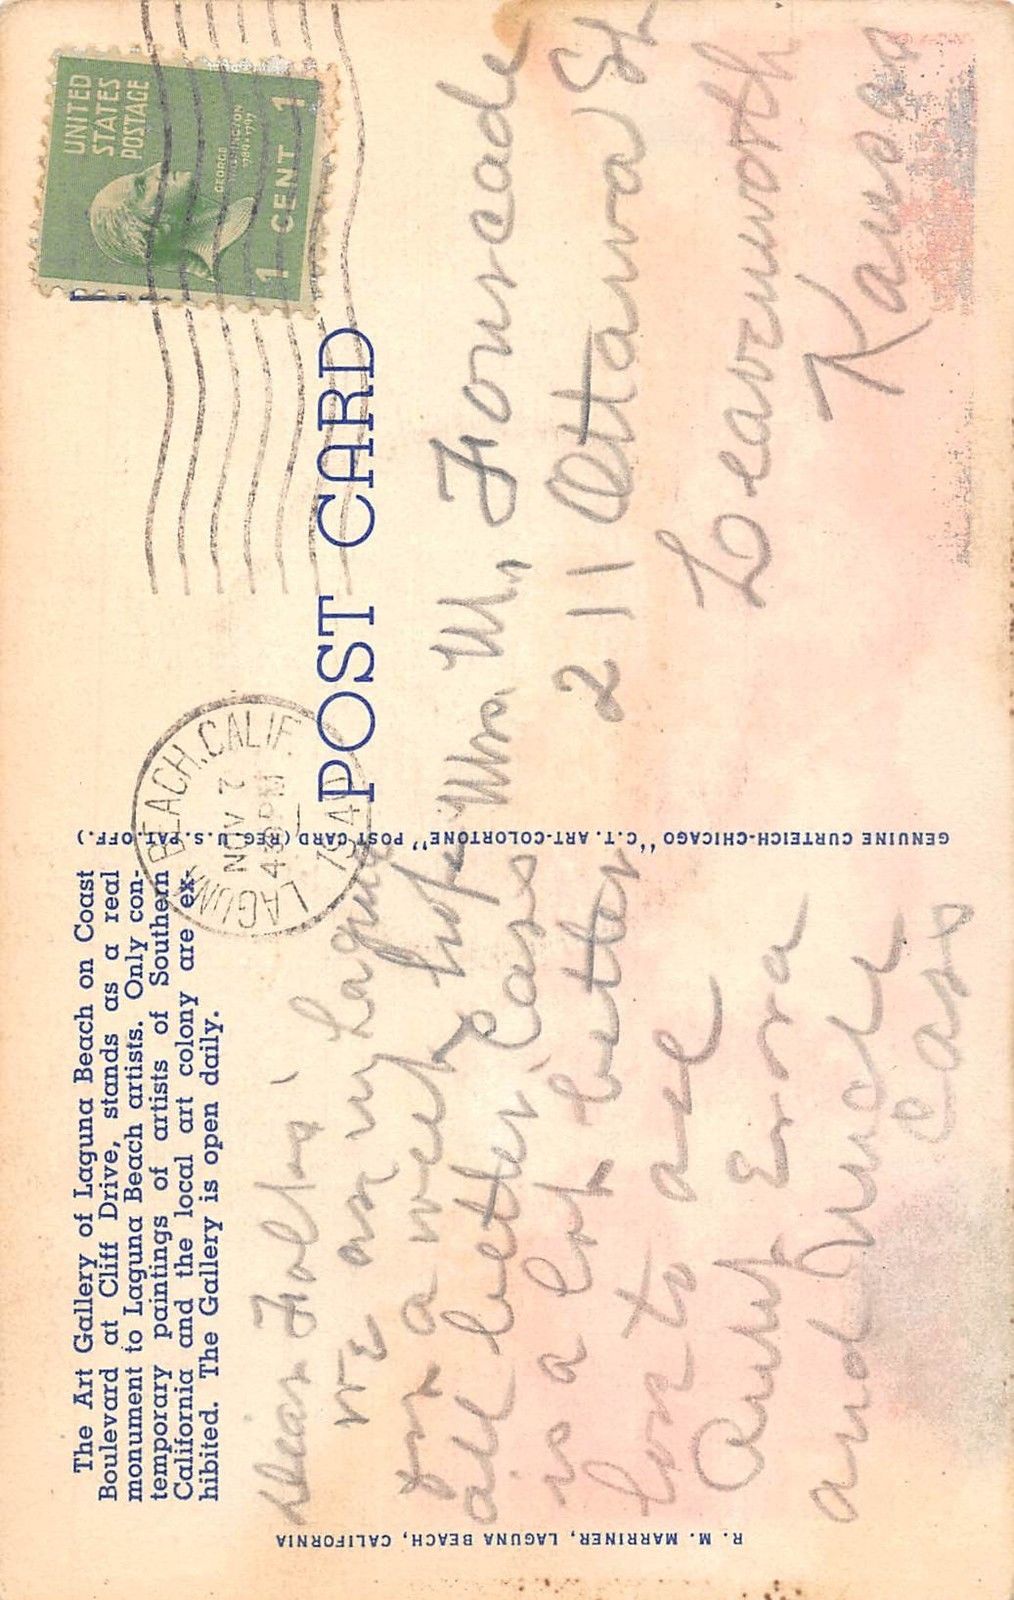 The Art Gallery of Laguna Beach on Coast
Boulevard at Cliff Drive, stands as a real
monument to Laguna Beach artists. Only con-
temporary paintings of artists of Southern
California and the local art colony are ex-
hibited. The Gallery is open daily.
Dear Folks'
we are in Laguna
for a week hope
all better, Cass
is a lot better
love to all
Aunt Erra
and Uncle
Cass
R. M. MARRINER, LAGUNA BEACH, CALIFORNIA
GENUINE CURTEICH-CHICAGO "C. T. ART-COLORTONE" POST CARD (REG. U. S. PAT. OFF.)
LAGUNA BEACH, CALIF.
NOV 7
430 PM
POST CARD
UNITED
STATES
POSTAGE
GEORGE
WASHINGTON
1789-1797
1 CENT 1
Mrs. M, Fourcade
211 Ottawa St
Leavenworth
Kansas